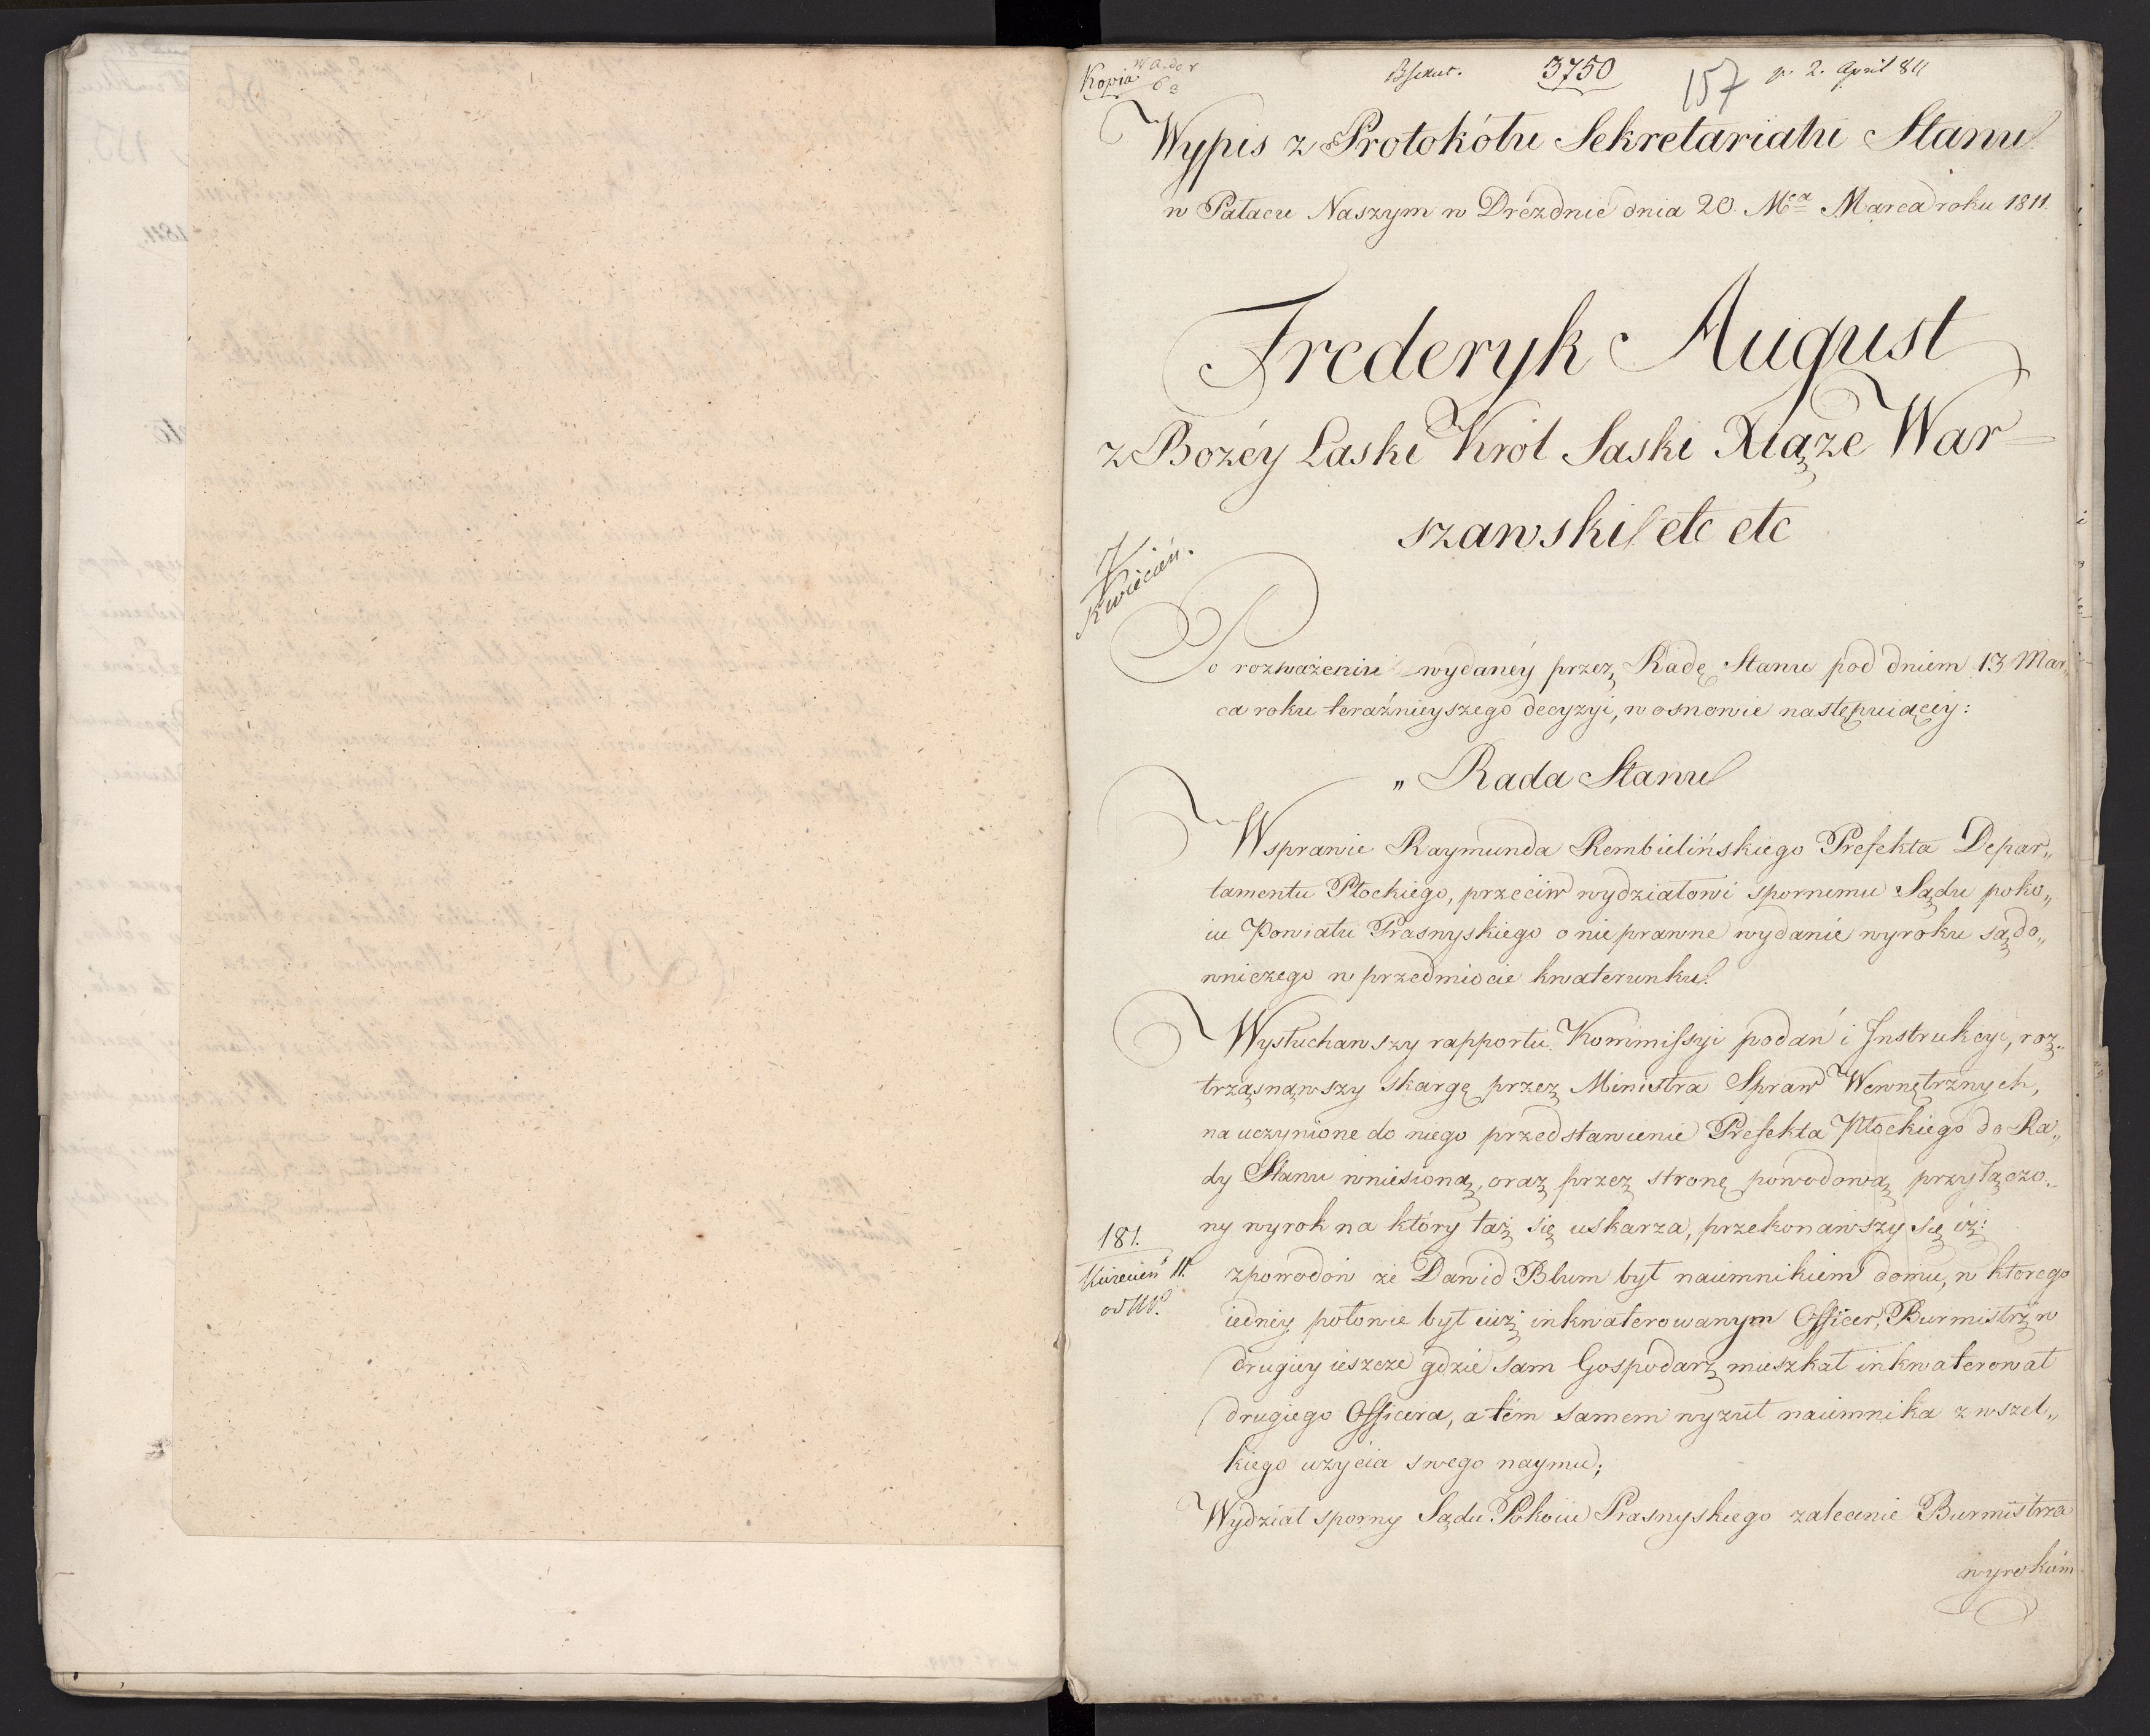 Kopia
3750
157
pr. 2. April 811
Wypis z Protokółu Sekretariatu Stanu
w Pałacu Naszym w Dreźnie dnia 20. Mca Marca roku 1811.
Frederyk August
z Bożéy Łaski Król Saski Xiąże War-
szawski etc etc
Kwiecień.
Po rozważeniu wydanéy przez Radę Stanu pod dniem 13 Mar„
ca roku teraźnieyszego decyzyi, w osnowie następuiącéy:
„ Rada Stanu
W sprawie Raymunda Rembielińskiego Prefekta Depar„
tamentu Płockiego, przeciw wydziałowi spornemu Sądu poko„
iu Powiatu Prasnyskiego o nieprawne wydanie wyroku sądo„
wniczego w przedmiocie kwaterunku.
Wysłuchawszy rapportu Kommissyi podań i Instrukcyi, roz„
trząsnąwszy skargę przez Ministra Spraw Wewnętrznych,
na uczynione do niego przedstawienie Prefekta Płockiego do Ra„
dy Stanu wniesioną, oraz przez stronę powodową przyłączo„
ny wyrok na który taż się uskarza, przekonawszy się iż:
181.
Kwiecień 11.
z powodów że Dawid Blum był naiemnikiem domu, w którego
iednéy połowie był iuż inkwaterowanym Officer, Burmistrz w
drugiéy ieszcze gdzie sam Gospodarz mieszkał inkwaterował
drugiego Officera, a tém samem wyzuł naiemnika z wszel„
kiego użycia swego naymu;
Wydział sporny Sądu Pokoiu Prasnyskiego zalecenie Burmistrza
wyrokiem